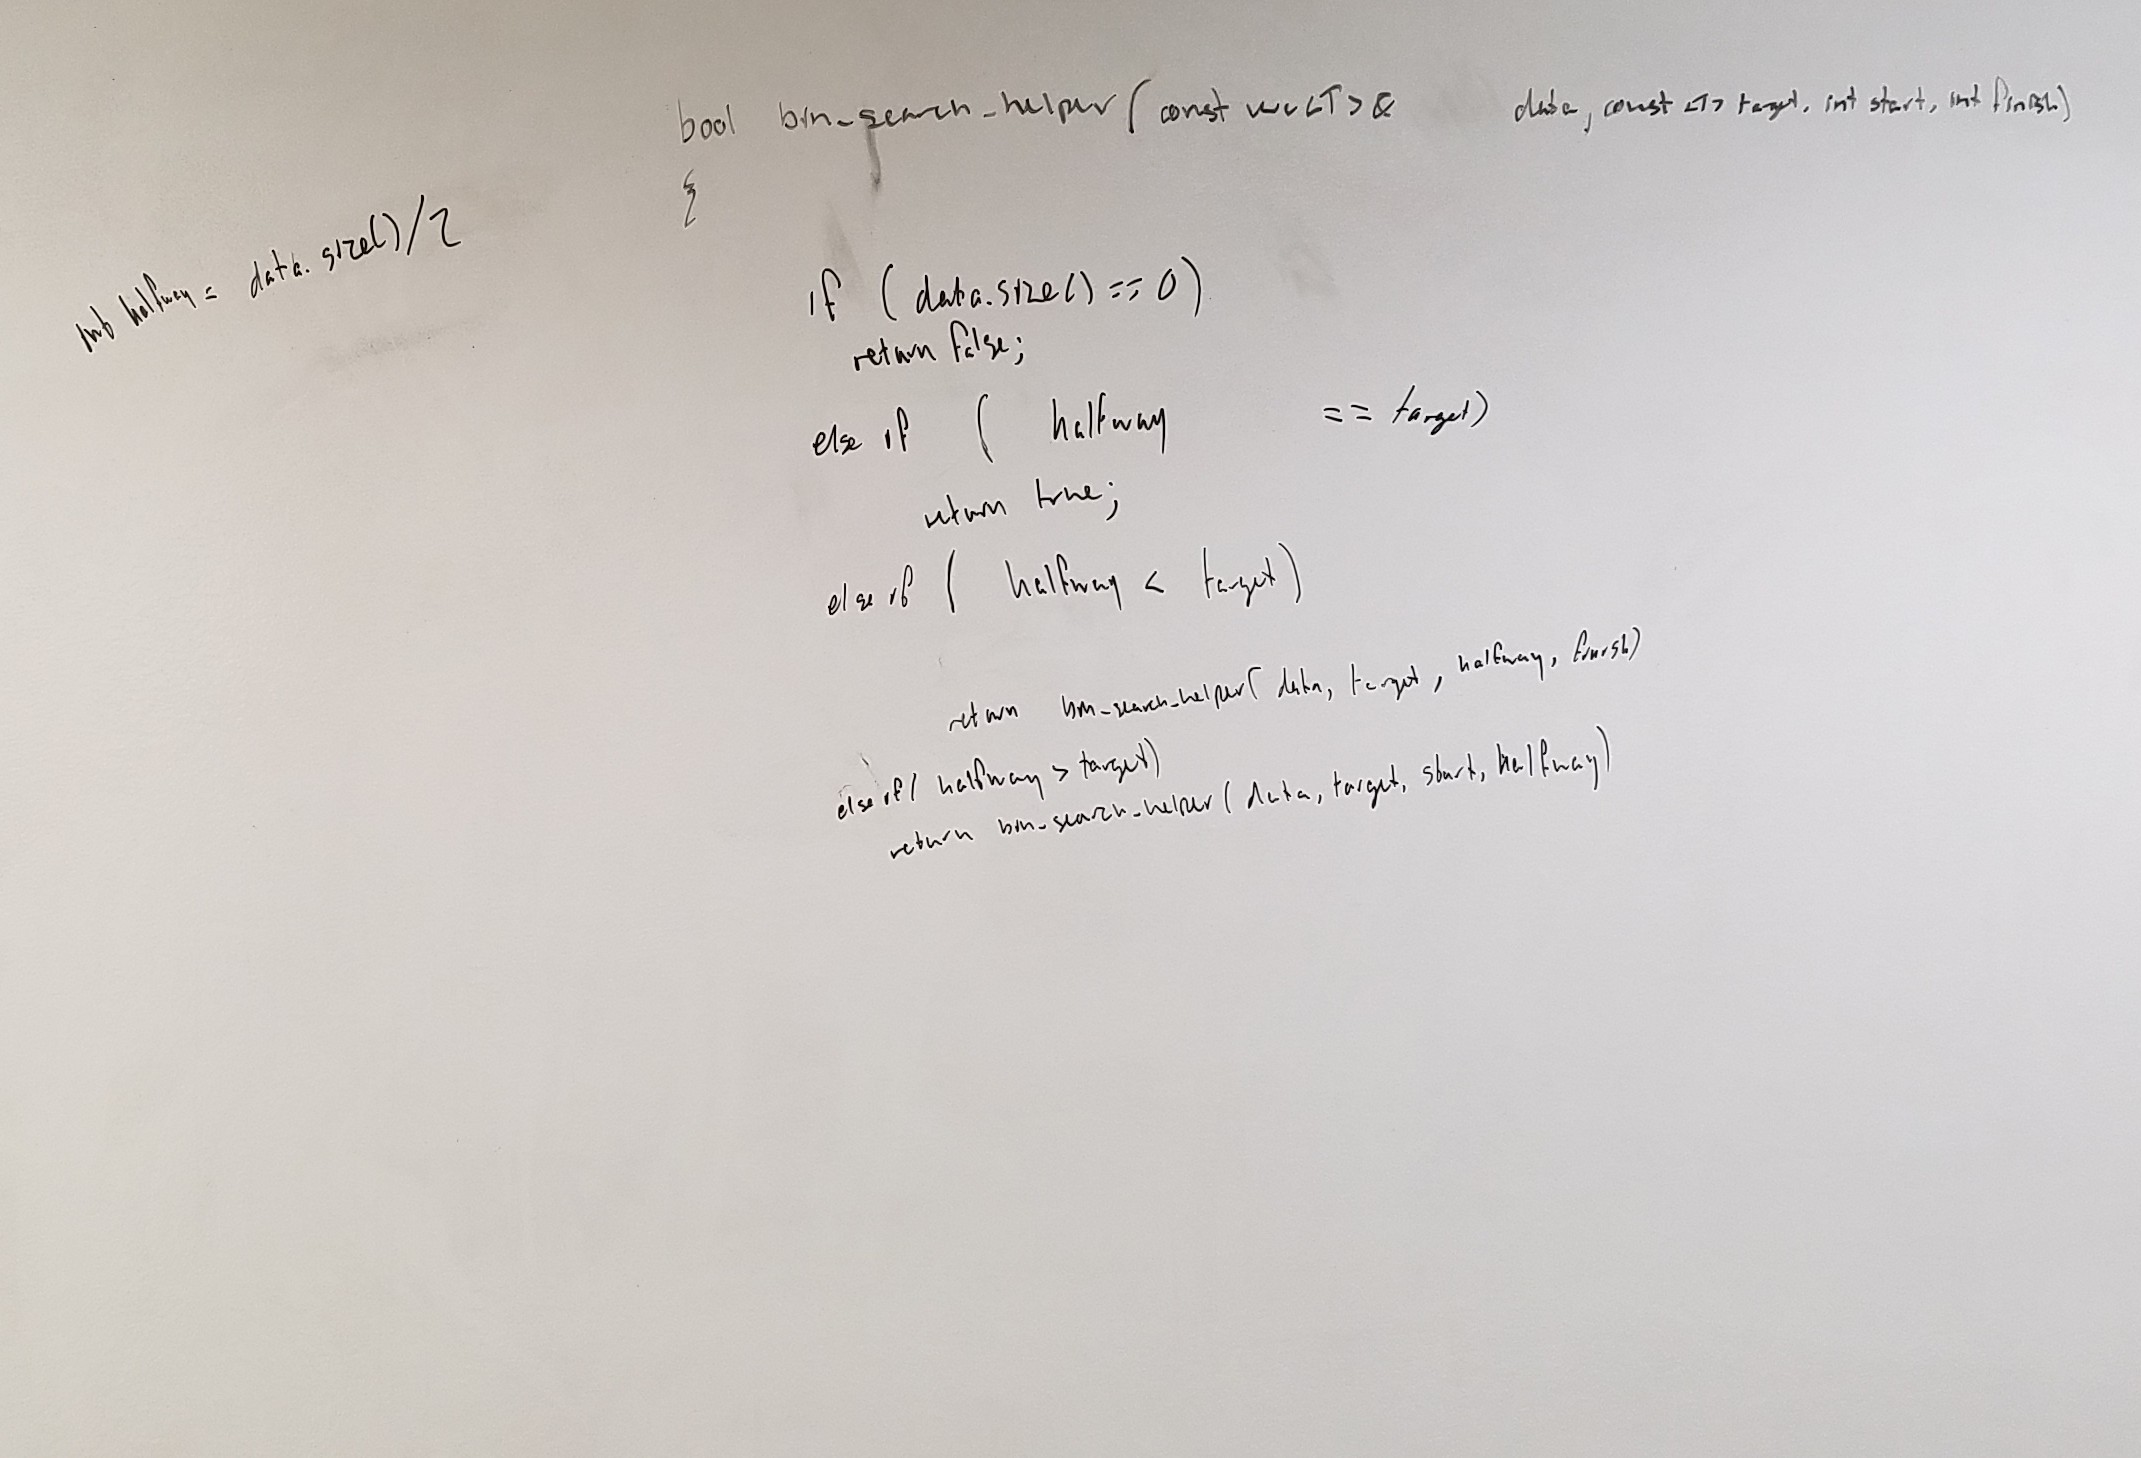 bool bin_search_helper ( const vec<T> & data, const <T> target, int start, int finish)
{
int halfway = data.size()/2
if ( data.size() == 0)
return false;
else if ( halfway == target)
return true;
else if ( halfway < target)
return bin_search_helper( data, target, halfway, finish)
else if ( halfway > target)
return bin_search_helper ( data, target, start, halfway)